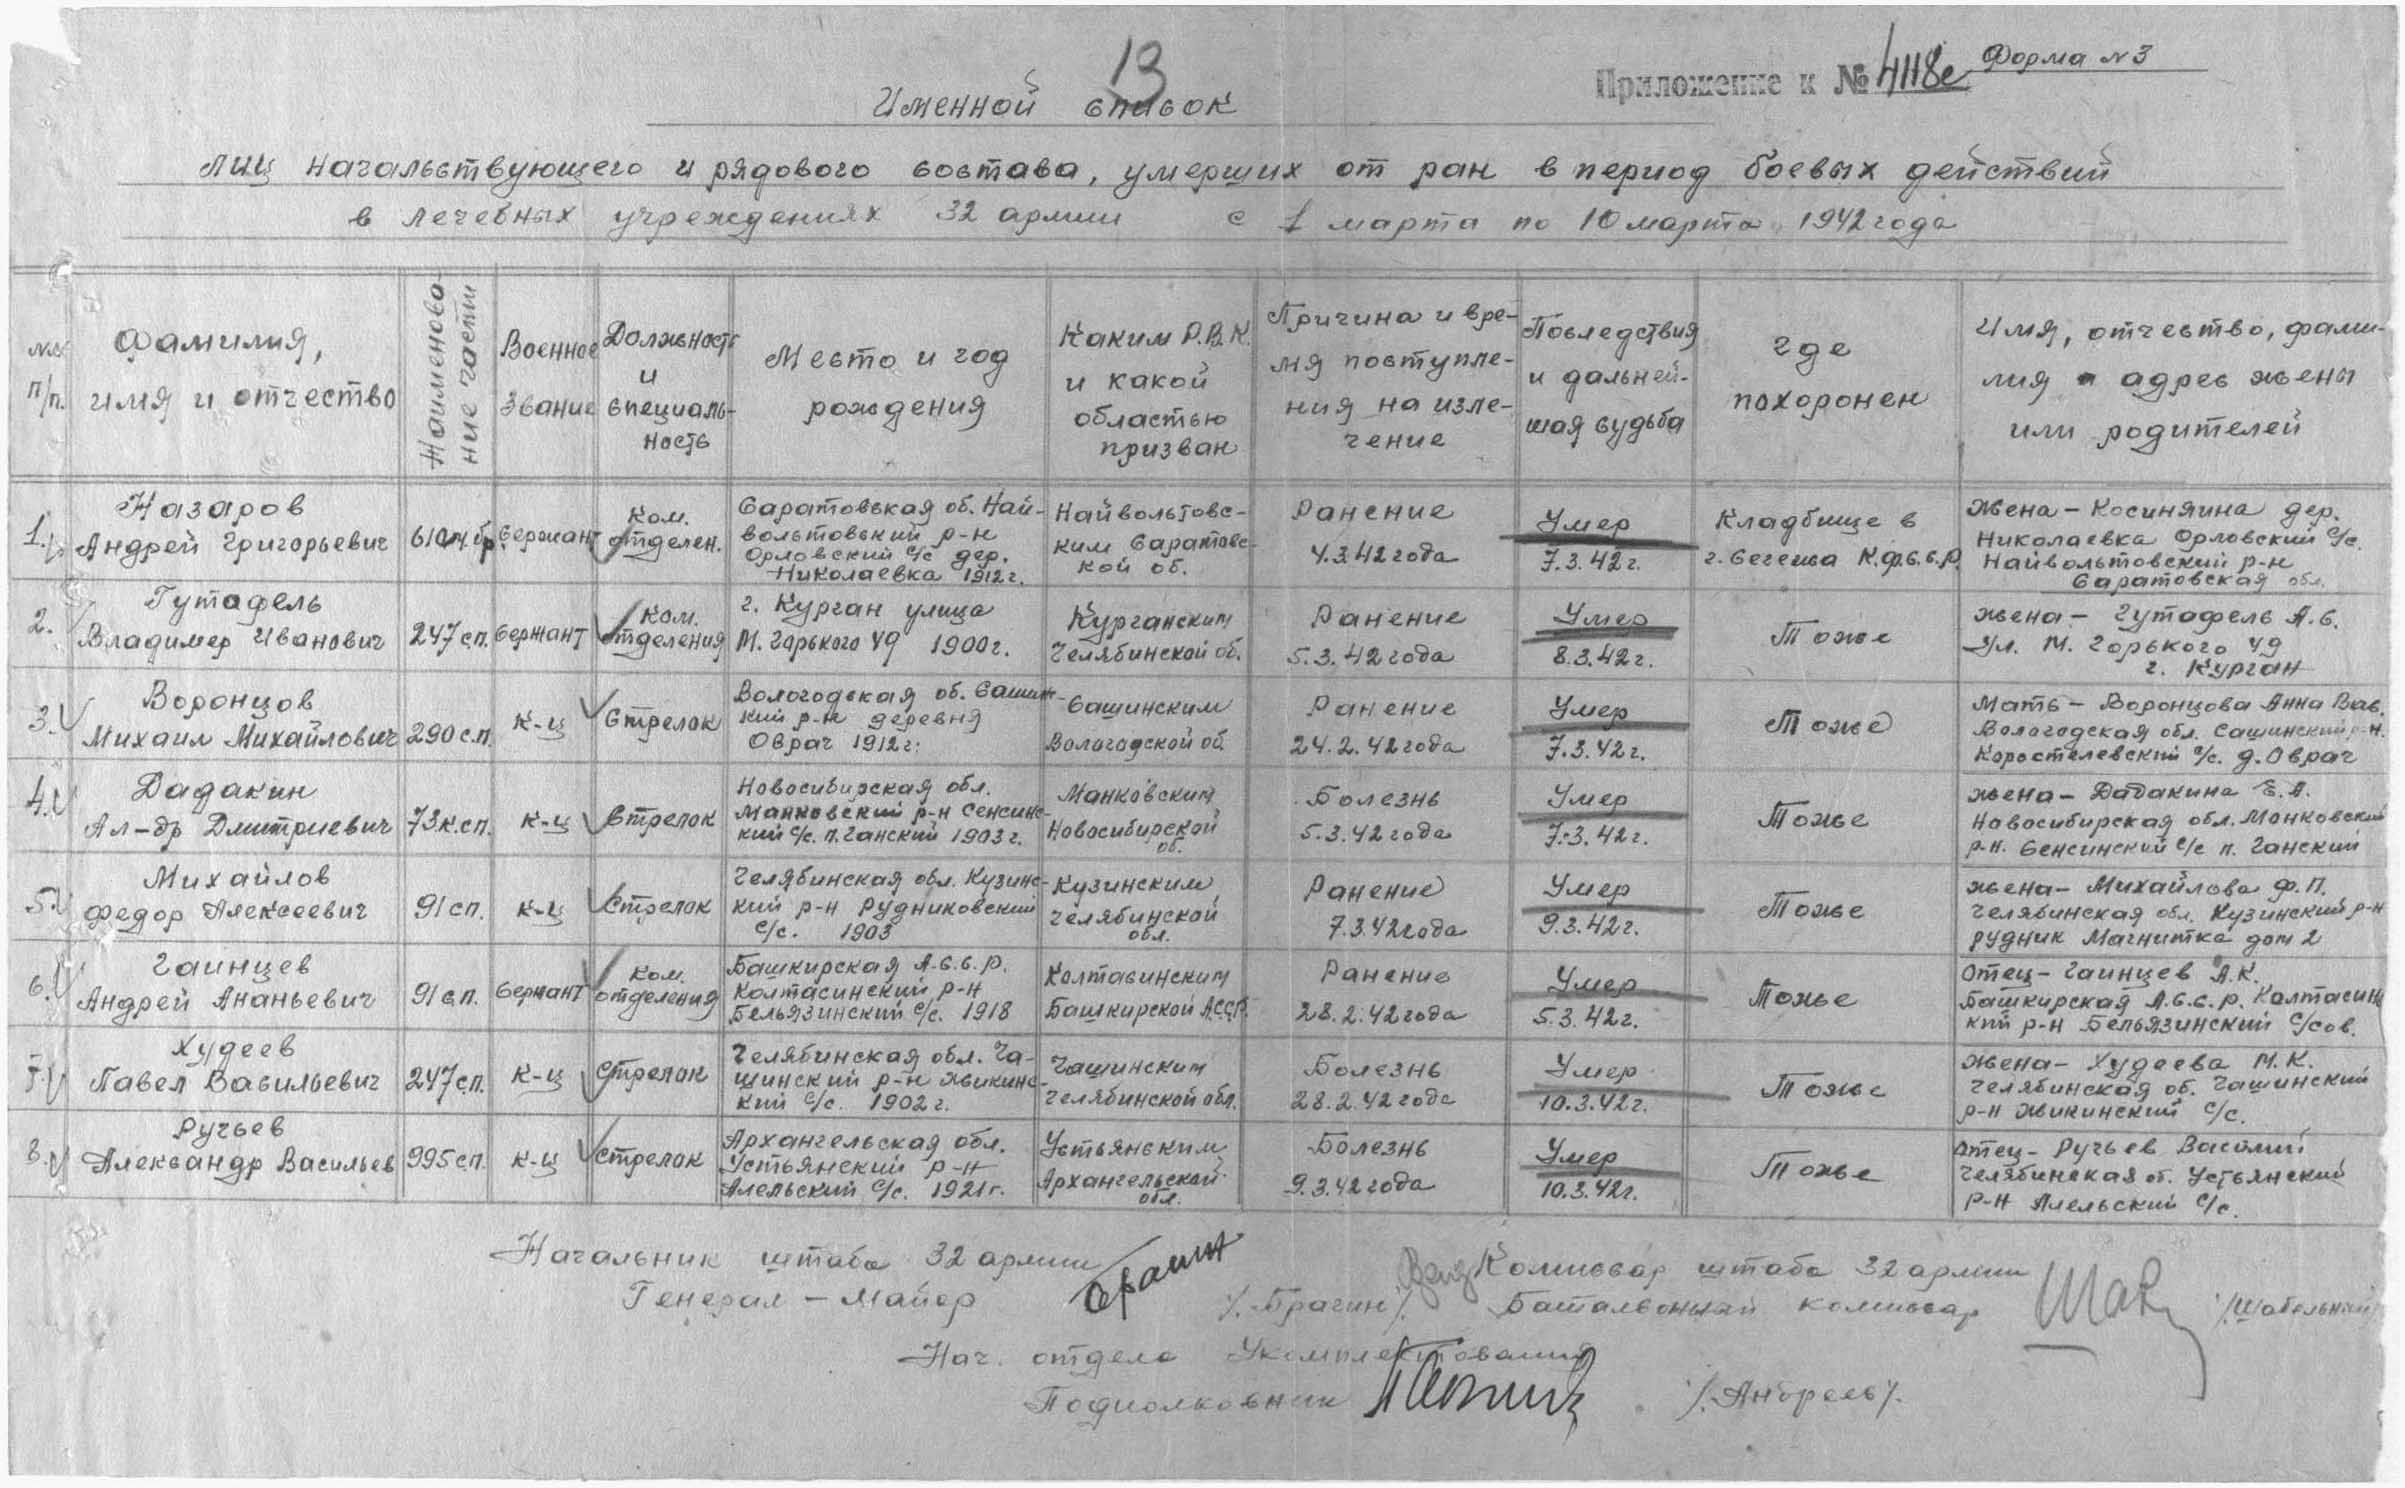 13
Приложение к № 4118с
Форма №3
Именной список
лиц начальствующего и рядового состава, умерших от ран в период боевых действий
в лечебных учреждениях 32 армии с 1 марта по 10 марта 1942 года
№№
п/п.
Фамилия,
имя и отчество
Наименова-
ние части
Военное
звание
Должность
и
специаль-
ность
Место и год
рождения
Каким Р.В.К.
и какой
областью
призван
Причина и вре-
мя поступле-
ния на изле-
чение
Последствия
и дальней-
шая судьба
где
похоронен
Имя, отчество, фами-
лия и адрес жены
или родителей
1.
Назаров
Андрей Григорьевич
61
Сержант
Ком.
отделен.
Саратовская об. Най-
вольтовский р-н
Орловский с/с дер.
Николаевка 1912г.
Найвольтовс-
ким Саратовс-
кой об.
Ранение
4.3.42 года
Умер
7.3.42г.
Кладбище в
г. Сегежа К.Ф.С.С.Р.
Жена - Косиняина дер.
Николаевка Орловский с/с.
Найвольтовский р-н
Саратовская обл.
2.
Гутафель
Владимер Иванович
247 с.п.
Сержант
Ком.
отделения
г. Курган улица
М. Горького 49 1900г.
Курганским
Челябинской об.
Ранение
5.3.42 года
Умер
8.3.42г.
Тоже
жена - Гутафель А.С.
Ул. М. Горького 49
г. Курган
3.
Воронцов
Михаил Михайлович
290 с.п.
К-ц
Стрелок
Вологодская об. Сашин-
кий р-н деревня
Оврач 1912г.
Сашинским
Вологодской об.
Ранение
24.2.42 года
Умер
7.3.42г.
Тоже
Мать - Воронцова Анна Вас.
Вологодская обл. Сашинский р-н.
Коростелевский с/с. д. Оврач
4.
Дадакин
Ал-др Дмитриевич
73 к.с.п.
К-ц
Стрелок
Новосибирская обл.
Манковский р-н Сенсинс-
кий с/с. п. Ганский 1903г.
Манковским
Новосибирской
об.
Болезнь
5.3.42 года
Умер
7.3.42г.
Тоже
жена - Дадакина Е.А.
Новосибирская обл. Манковский
р-н. Сенсинский с/с п. Ганский
5.
Михайлов
Федор Алексеевич
91 сп.
К-ц
Стрелок
Челябинская обл. Кузинс-
кий р-н Рудниковский
с/с. 1903
Кузинским
Челябинской
обл.
Ранение
7.3.42 года
Умер
9.3.42г.
Тоже
жена - Михайлова Ф.П.
Челябинская обл. Кузинский р-н
рудник Магнитка дом 2
6.
Гаинцев
Андрей Ананьевич
91 с.п.
Сержант
Ком.
отделения
Башкирская А.С.С.Р.
Колтасинский р-н
Бельязинский с/с. 1918
Колтасинским
Башкирской А.С.С.Р.
Ранение
28.2.42 года
Умер
5.3.42г.
Тоже
Отец - Гаинцев А.К.
Башкирская А.С.С.Р. Колтасинс
кий р-н Бельязинский с/сов.
7.
Худеев
Павел Васильевич
247 с.п.
К-ц
Стрелок
Челябинская обл. Ча-
шинский р-н Жикинс-
кий с/с. 1902г.
Чашинским
Челябинской обл.
Болезнь
28.2.42 года
Умер
10.3.42г.
Тоже
Жена - Худеева М.К.
Челябинская об. Чашинский
р-н Жикинский с/с.
8.
Ручьев
Александр Васильев
995 с.п.
К-ц
Стрелок
Архангельская обл.
Устьянский р-н
Алельский с/с. 1921г.
Устьянским
Архангельской
обл.
Болезнь
9.3.42 года
Умер
10.3.42г.
Тоже
Отец - Ручьев Василий
Челябинская об. Устьянский
р-н Алельский с/с.
Начальник штаба 32 армии
Генерал-Майор /.Брагин/.
Комиссар штаба 32 армии
Батальонный комиссар /Шабельный/
Нач. отдела Укомплектования
Подполковник /.Андреев/.